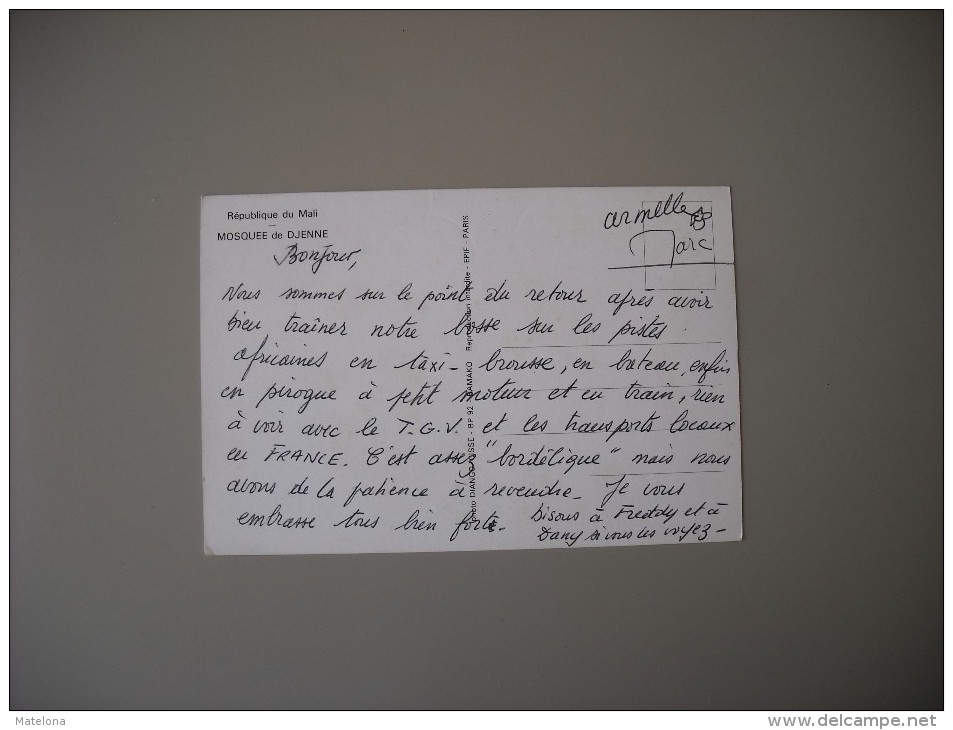 République du Mali
MOSQUEE de DJENNE
Armelle
Marc
Bonjour,
Nous sommes sur le point du retour après avoir
bien traîner notre bosse sur les pistes
africaines en taxi-brousse, en bateau, enfin
en pirogue à petit moteur et en train, rien
à voir avec le T.G.V. et les transports locaux
en FRANCE. C'est assez "bordélique" mais nous
avons de la patience à revendre. Je vous
embrasse tous bien forte.
Bisous à Freddy et à
Dany si vous les voyez -
BP 92 BAMAKO Reproduction interdite - EPIF - PARIS
Matelona
www.delcampe.net